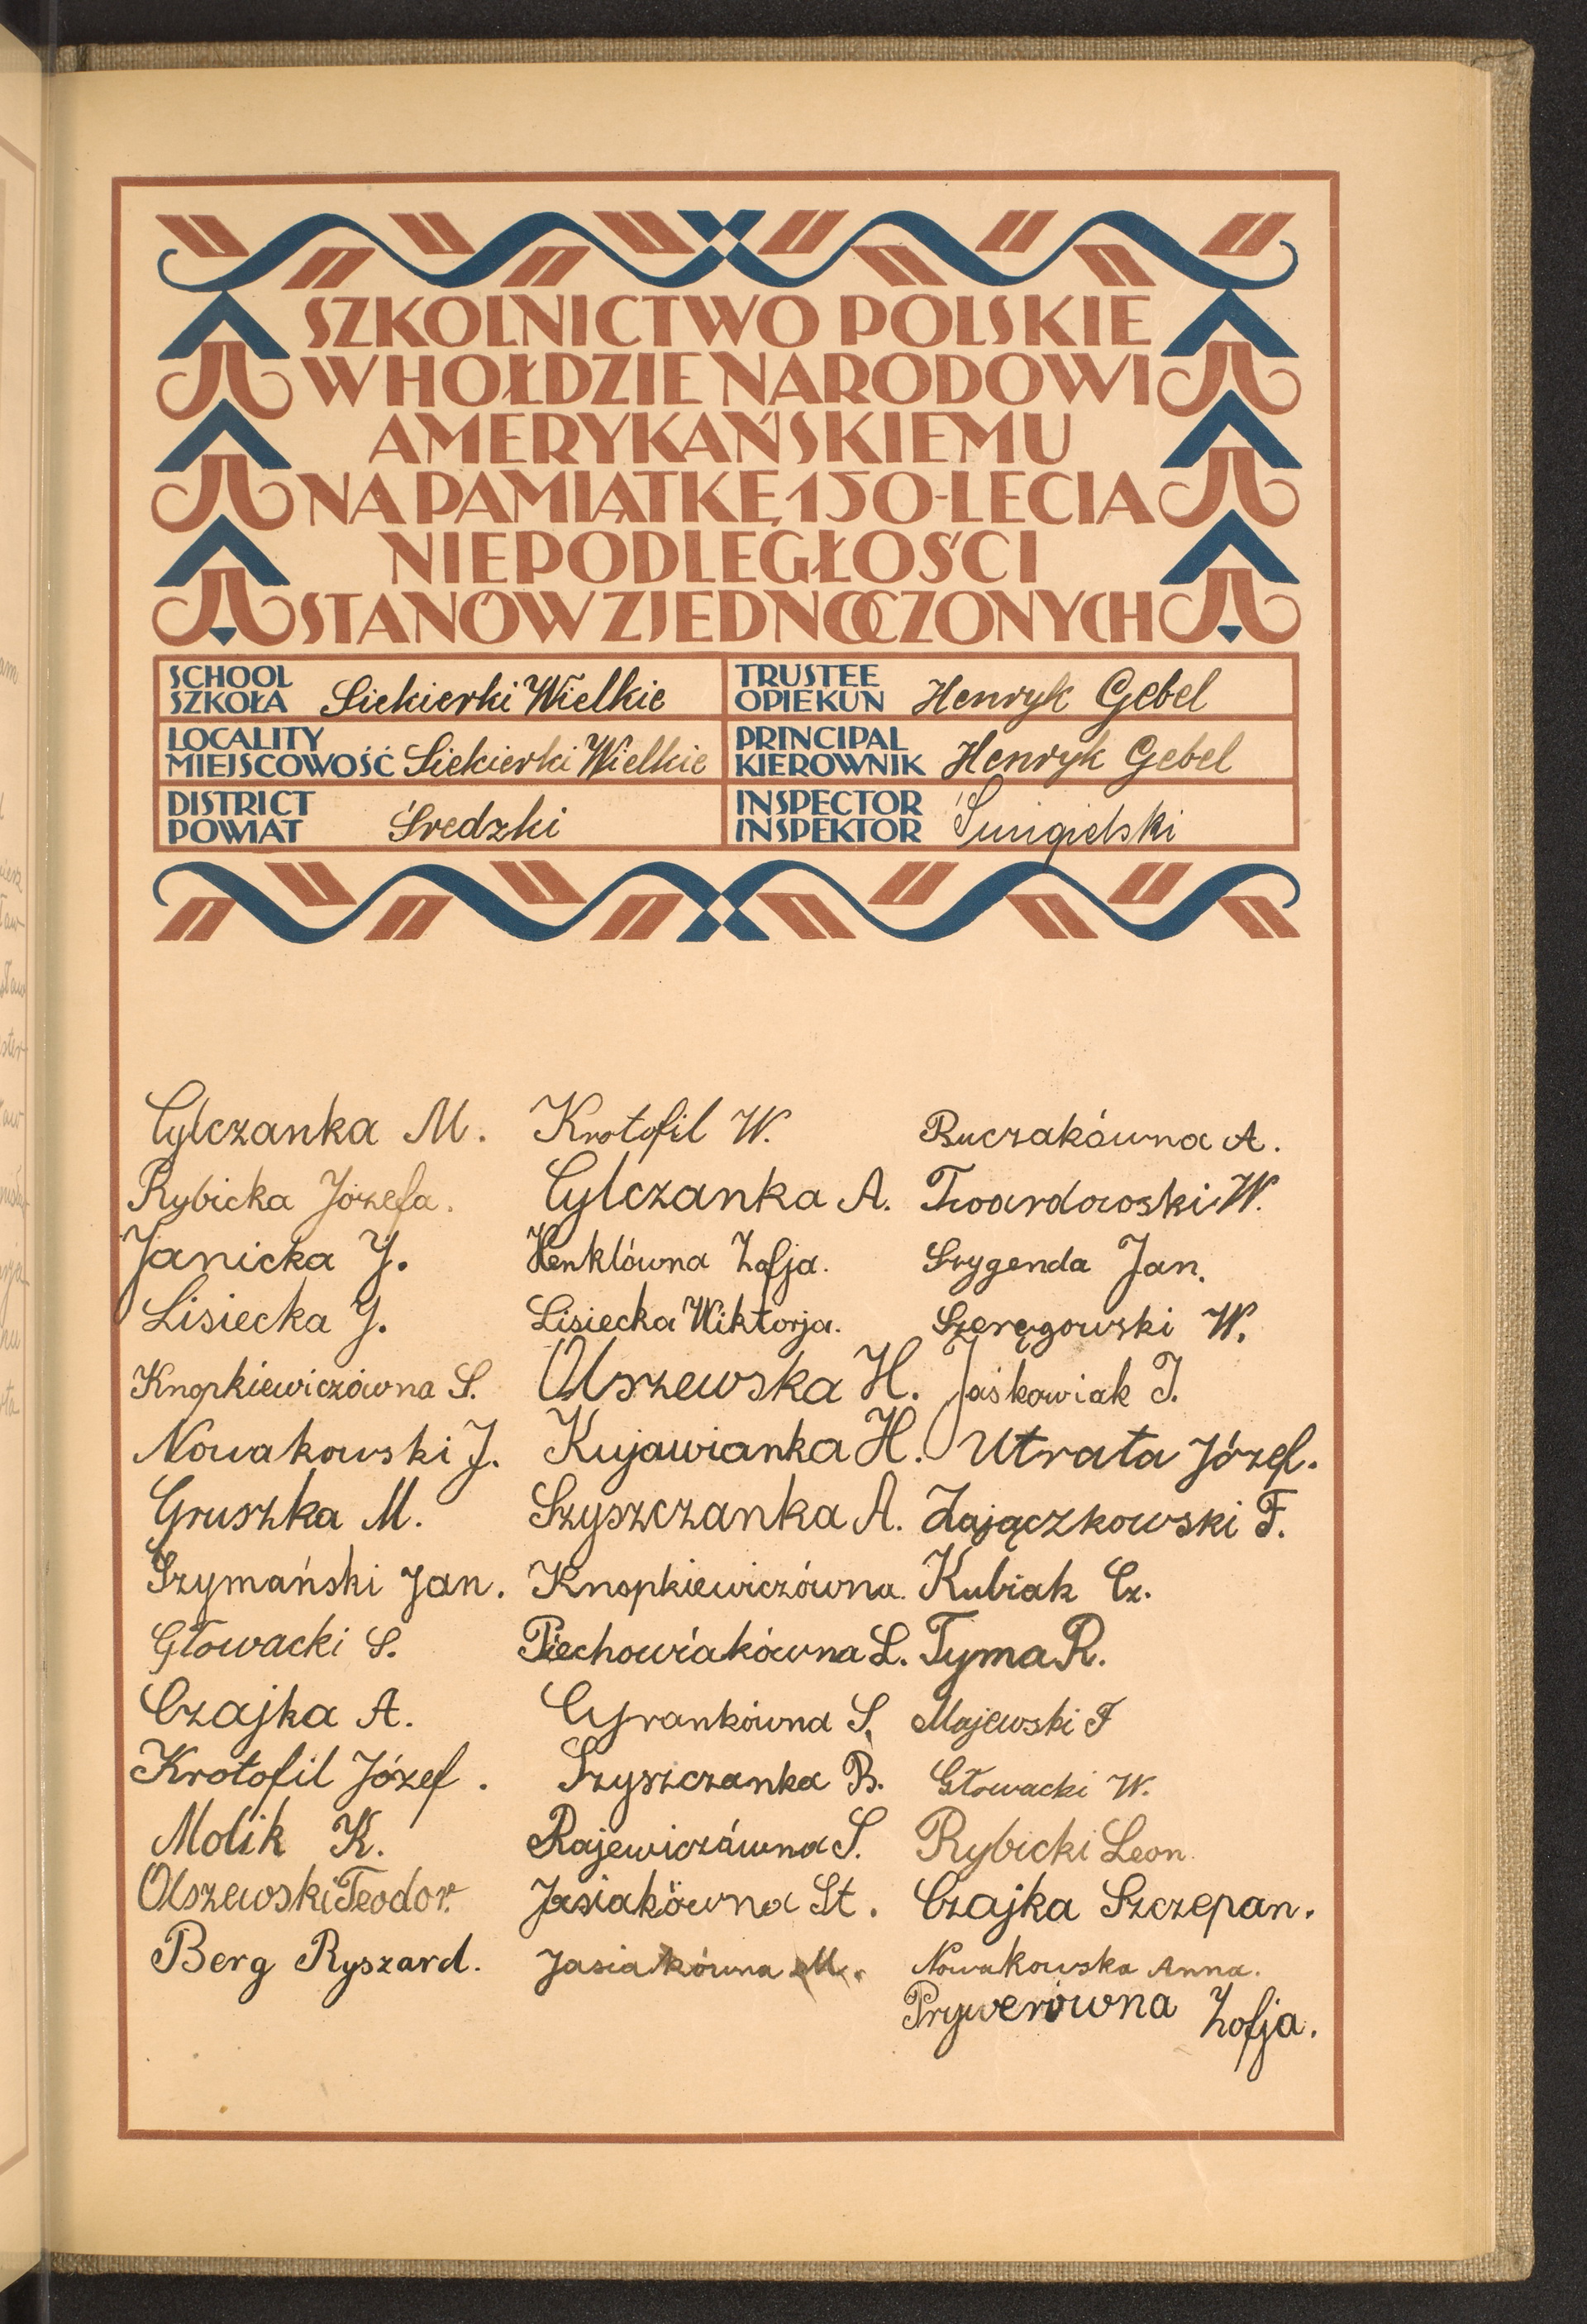 SZKOLNICTWO POLSKIE
W HOŁDZIE NARODOWI
AMERYKAŃSKIEMU
NA PAMIĄTKĘ 150-LECIA
NIEPODLEGŁOŚCI
STANÓW ZJEDNOCZONYCH
SCHOOL
SZKOŁA Siekierki Wielkie
TRUSTEE
OPIEKUN Henryk Gebel
LOCALITY
MIEJSCOWOŚĆ Siekierki Wielkie
PRINCIPAL
KIEROWNIK Henryk Gebel
DISTRICT
POWIAT Średzki
INSPECTOR
INSPEKTOR
Cylczanka M.
Rybicka Józefa.
Janicka J.
Lisiecka J.
Knopkiewiczówna S.
Nowakowski J.
Gruszka M.
Szymański Jan.
Głowacki S.
Czajka A.
Krotofil Józef.
Molik K.
Olszewski Teodor.
Berg Ryszard.
Krotofil W.
Cylczanka A.
Henklówna Zofja.
Lisiecka Wiktorja.
Olszewska H.
Kujawianka H.
Szyszczanka A.
Knopkiewiczówna.
Piechowiakówna L.
Cyrankówna S.
Szyszczanka B.
Rajewiczówna S.
Jasiakówna St.
Jasiakówna M.
Buczakówna A.
Twardowski W.
Szygenda Jan.
Szeręgowski W.
Jaśkowiak J.
Utrata Józef.
Zajączkowski F.
Kubiak Cz.
Tyma R.
Majewski F
Głowacki W.
Rybicki Leon.
Czajka Szczepan.
Nowakowska Anna.
Prywerówna Zofja.